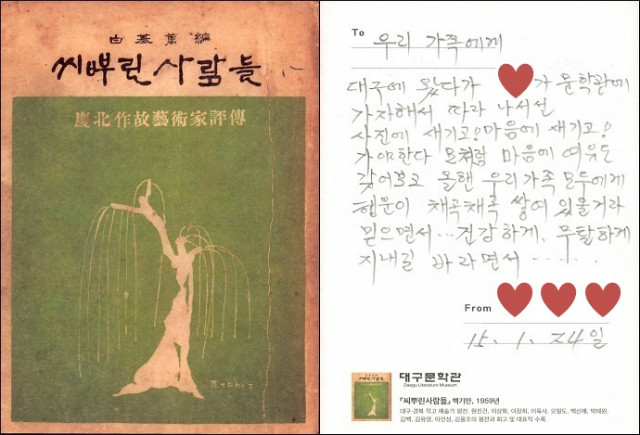 白基萬編
씨뿌린사람들
慶北作故藝術家評傳
To 우리 가족에게
대구에 왔다가 가 문학관에
가자해서 따라 나서선
사진에 새기고! 마음에 새기고!
가야한다 모처럼 마음에 여유도
갖어보고 올핸 우리가족 모두에게
행운이 채곡채곡 쌓여 있을거라
믿으면서... 건강하게. 무탈하게
지내길 바라면서 ......
From
15. 1. 24일
대구문학관
Daegu Literature Museum
『씨뿌린사람들』 백기만, 1959년
대구·경북 작고 예술가 평전. 현진건, 이상화, 이장희, 이육사, 오일도, 백신애, 박태원,
김백, 김유영, 이인성, 김용조의 평전과 회고 및 대표작 수록